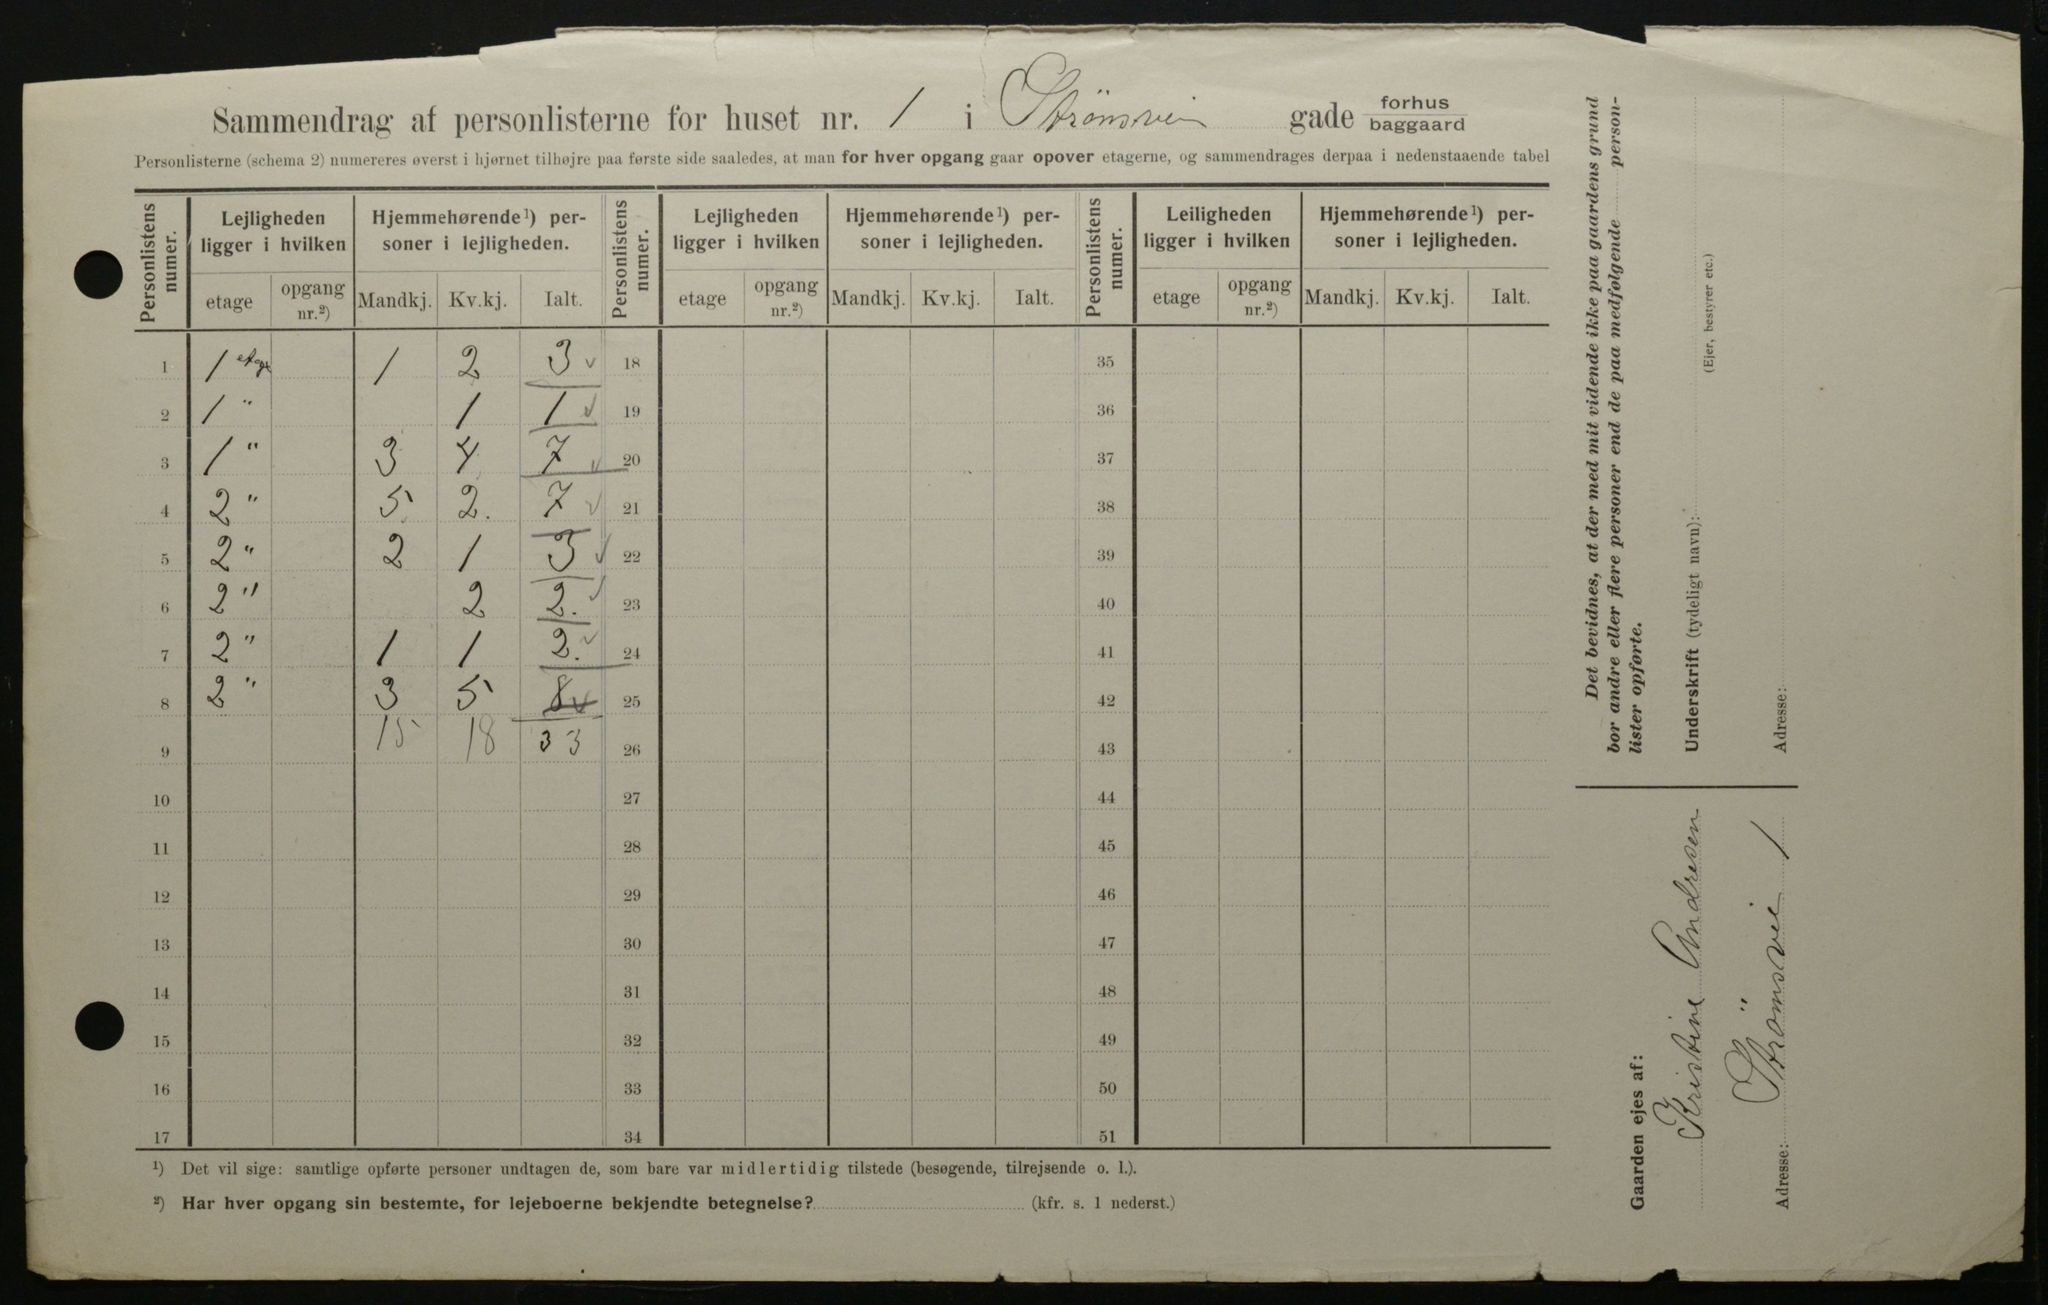 Sammendrag af personlisterne for huset nr. 1 i Strømsvei gade forhus baggaard
Personlisterne (schema 2) numereres øverst i hjørnet tilhøjre paa første side saaledes, at man for hver opgang gaar opover etagerne, og sammendrages derpaa i nedenstaaende tabel
Personlistens numer. Lejligheden ligger i hvilken Hjemmehørende¹) personer i lejligheden. Personlistens numer. Lejligheden ligger i hvilken Hjemmehørende¹) personer i lejligheden. Personlistens numer. Leiligheden ligger i hvilken Hjemmehørende¹) personer i lejligheden.
etage opgang nr.²) Mandkj. Kv.kj. Ialt. etage opgang nr.²) Mandkj. Kv.kj. Ialt. etage opgang nr.²) Mandkj. Kv.kj. Ialt.
1 1 etage 1 2 3 18 35
2 1 " 1 1 19 36
3 1 " 3 4 7 20 37
4 2 " 5 2. 7 21 38
5 2 " 2 1 3 22 39
6 2 " 2 2. 23 40
7 2 " 1 1 2. 24 41
8 2 " 3 5 8 25 42
9 15 18 33 26 43
10 27 44
11 28 45
12 29 46
13 30 47
14 31 48
15 32 49
16 33 50
17 34 51
¹) Det vil sige: samtlige opførte personer undtagen de, som bare var midlertidig tilstede (besøgende, tilrejsende o. l.).
²) Har hver opgang sin bestemte, for lejeboerne bekjendte betegnelse? (kfr. s. 1 nederst.)
Det bevidnes, at der med mit vidende ikke paa gaardens grund
bor andre eller flere personer end de paa medfølgende person-
lister opførte.
Underskrift (tydeligt navn):
(Ejer, bestyrer etc.)
Adresse:
Gaarden ejes af:
Kristine Andresen
Adresse: Strömsvei 1